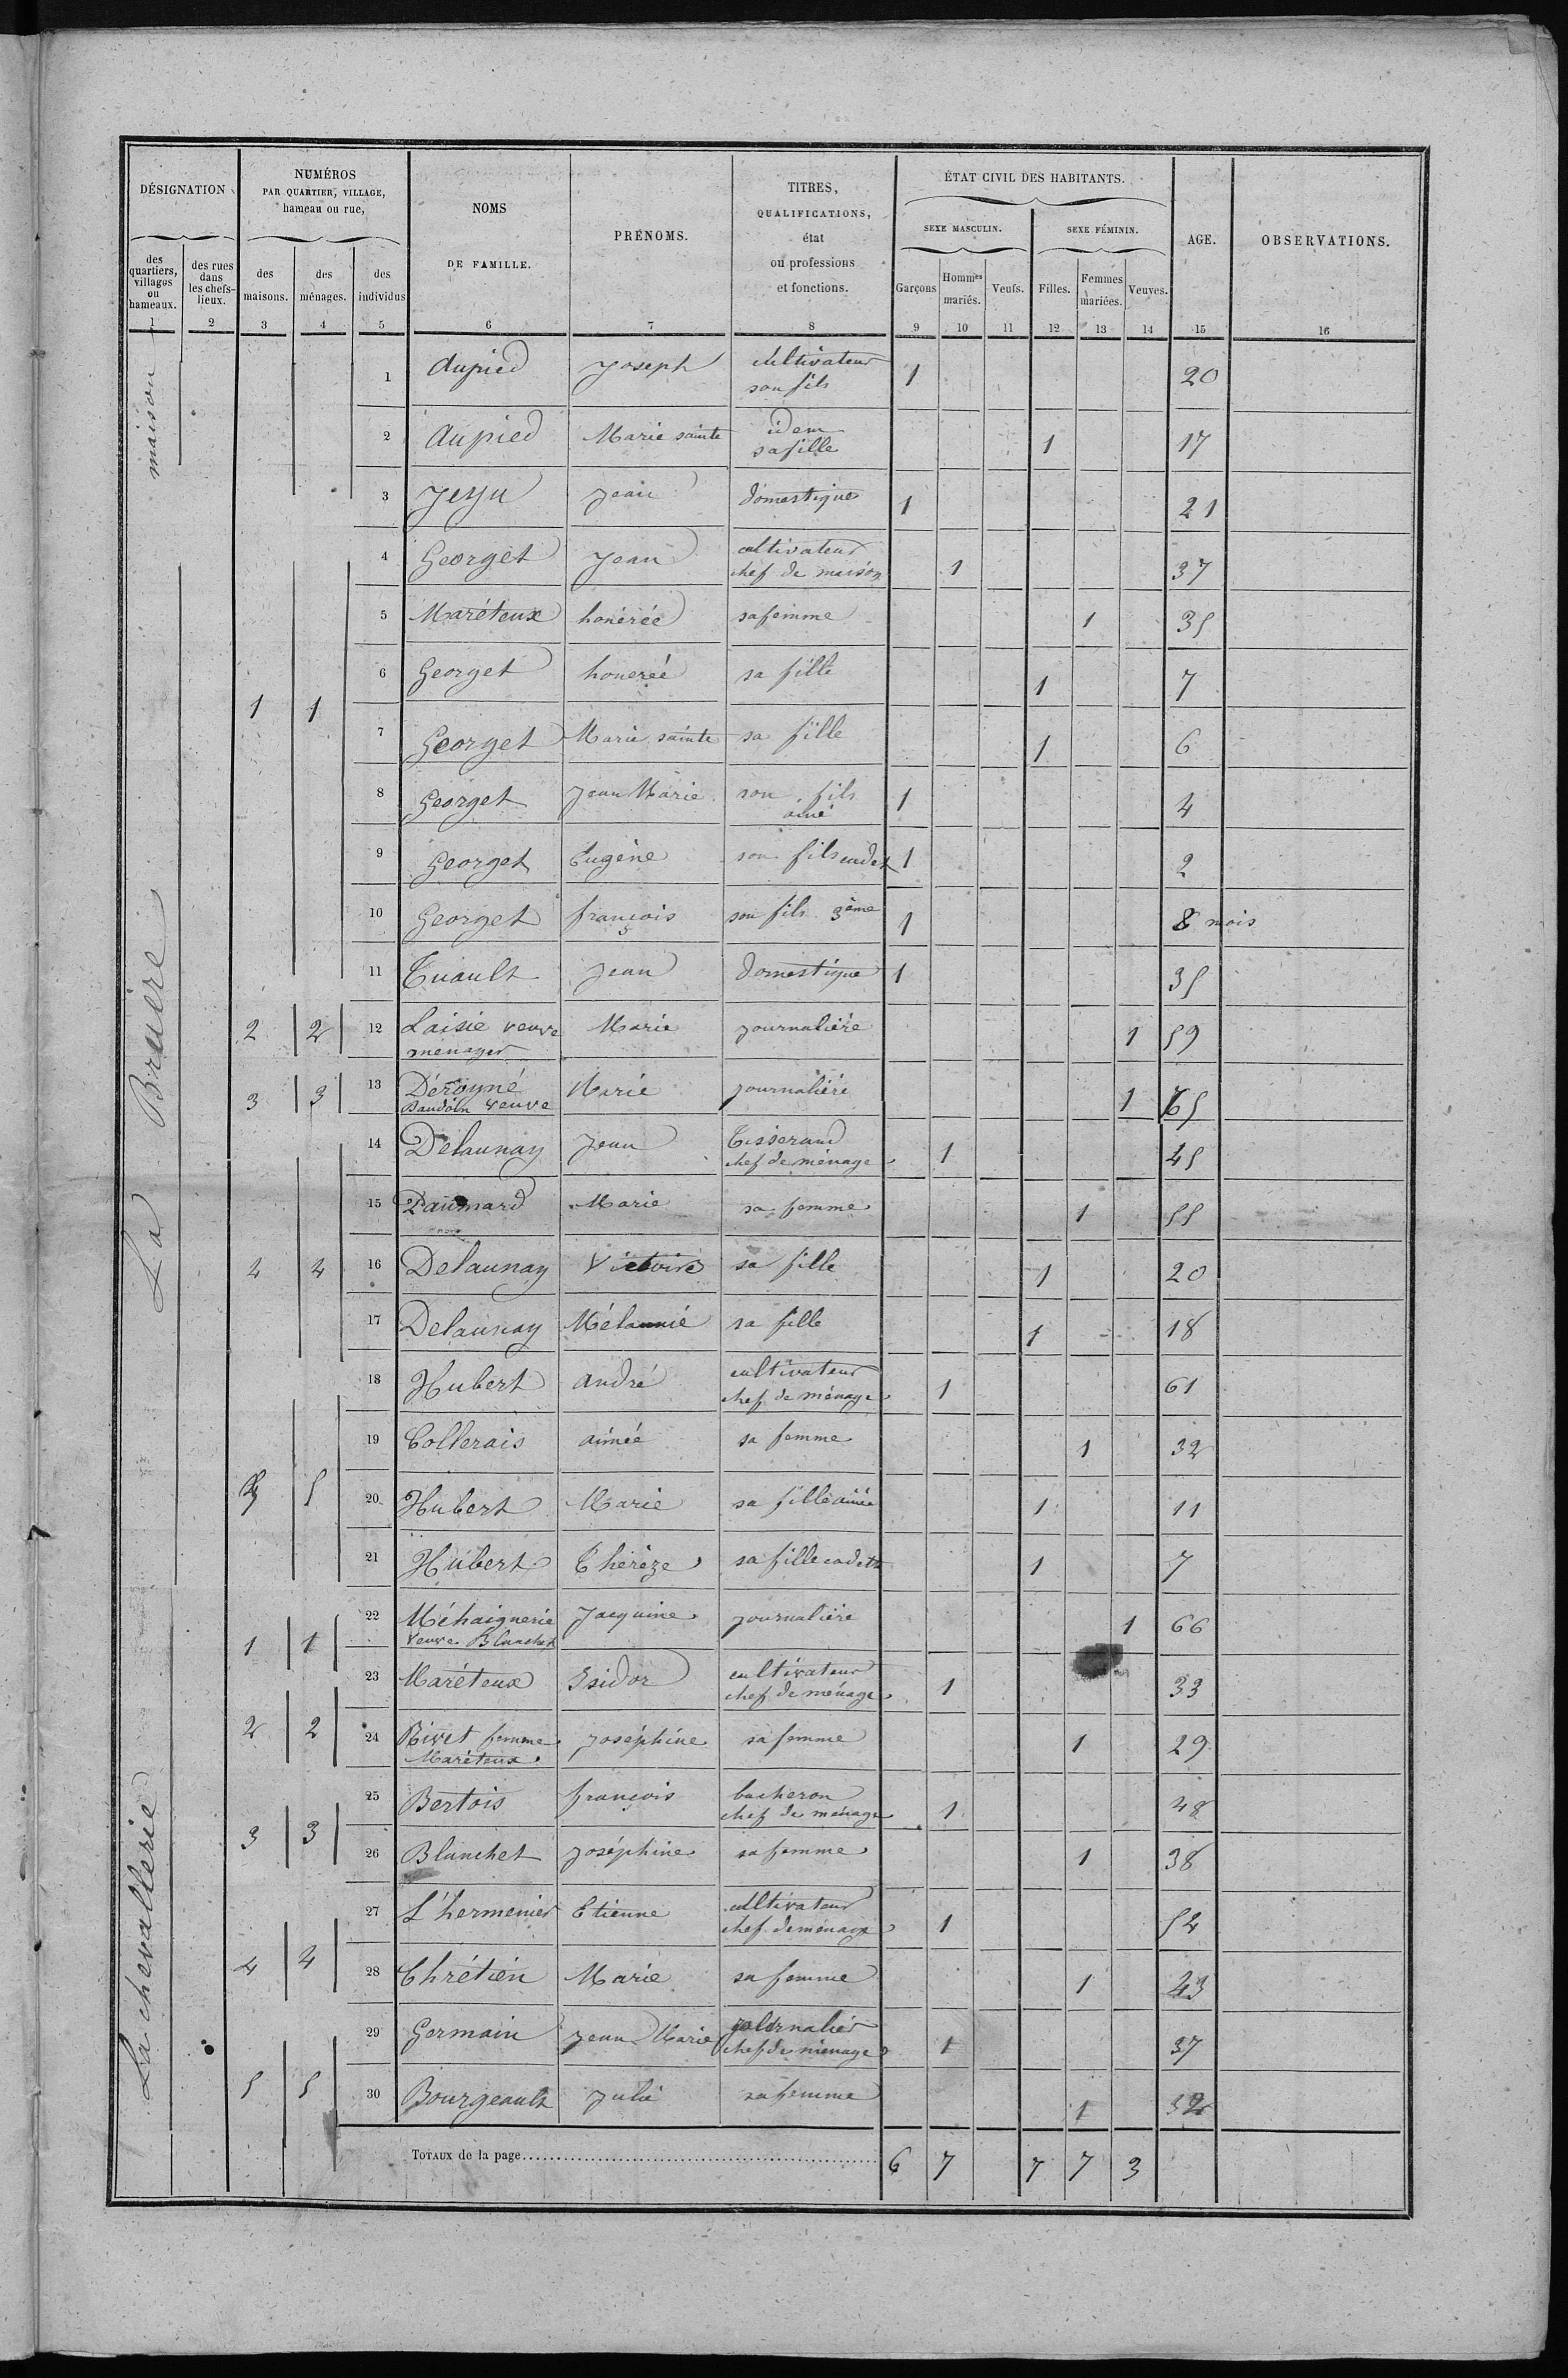 DÉSIGNATION
NUMÉROS
PAR QUARTIER, VILLAGE,
hameau ou rue,
NOMS
DE FAMILLE.
PRÉNOMS.
TITRES,
QUALIFICATIONS,
état
ou professions
et fonctions.
ÉTAT CIVIL DES HABITANTS.
SEXE MASCULIN.
SEXE FÉMININ.
AGE.
OBSERVATIONS.
des
quartiers,
villages
ou
hameaux.
des rues
dans
les chefs-
lieux.
des
maisons.
des
ménages.
des
individus
Garçons
Hommes
mariés.
Veufs.
Filles.
Femmes
mariées.
Veuves.
1 2 3 4 5 6 7 8 9 10 11 12 13 14 15 16
maison
1 Aupied Joseph cultivateur 1 20
son fils
2 Aupied Marie sainte idem 1 17
sa fille
3 Jean domestique 1 21
La Bruère
4 Georget Jean cultivateur 1 37
chef de maison
5 Maréteux honérée sa femme 1 35
6 Georget honereé sa fille 1 7
1 1
7 Georget Marie sainte sa fille 1 6
8 Georget Jean Marie son fils 1 4
ainé
9 Georget Eugène son fils cadet 1 2
10 Georget françois son fils 3ème 1 8 mois
11 Tuault Jean domestique 1 35
2 2 12 Laisie veuve Marie journalière 1 59
menager
3 3 13 Déroyné Marie journalière 1 65
Baudoin veuve
14 Delaunay Jean Tisserand 1 45
chef de ménage
15 Paumard Marie sa femme 1 55
4 4 16 Delaunay Victoire sa fille 1 20
17 Delaunay Mélannie sa fille 1 18
18 Hubert andré cultivateur 1 61
chef de ménage
19 Collerais aimée sa femme 1 32
5 5 20 Hubert Marie sa fille ainée 1 11
21 Hubert Thérèze sa fille cadette 1 7
La chevallerie
1 1 22 Méhaignerie Jacquine journalière 1 66
veuve Blanchet
23 Maréteux Isidor cultivateur 1 33
chef de ménage
2 2 24 Rivet femme Joséphine sa femme 1 29
Maréteux
25 Bertois françois bucheron 1 48
chef de ménage
3 3
26 Blanchet Joséphine sa femme 1 38
27 L'hermenier Etienne cultivateur 1 54
chef de ménage
4 4 28 Chrétien Marie sa femme 1 43
29 Germain Jean Marie journalier 1 37
chef de ménage
5 5 30 Bourgeault Julie sa femme 1 32
TOTAUX de la page 6 7 7 7 3